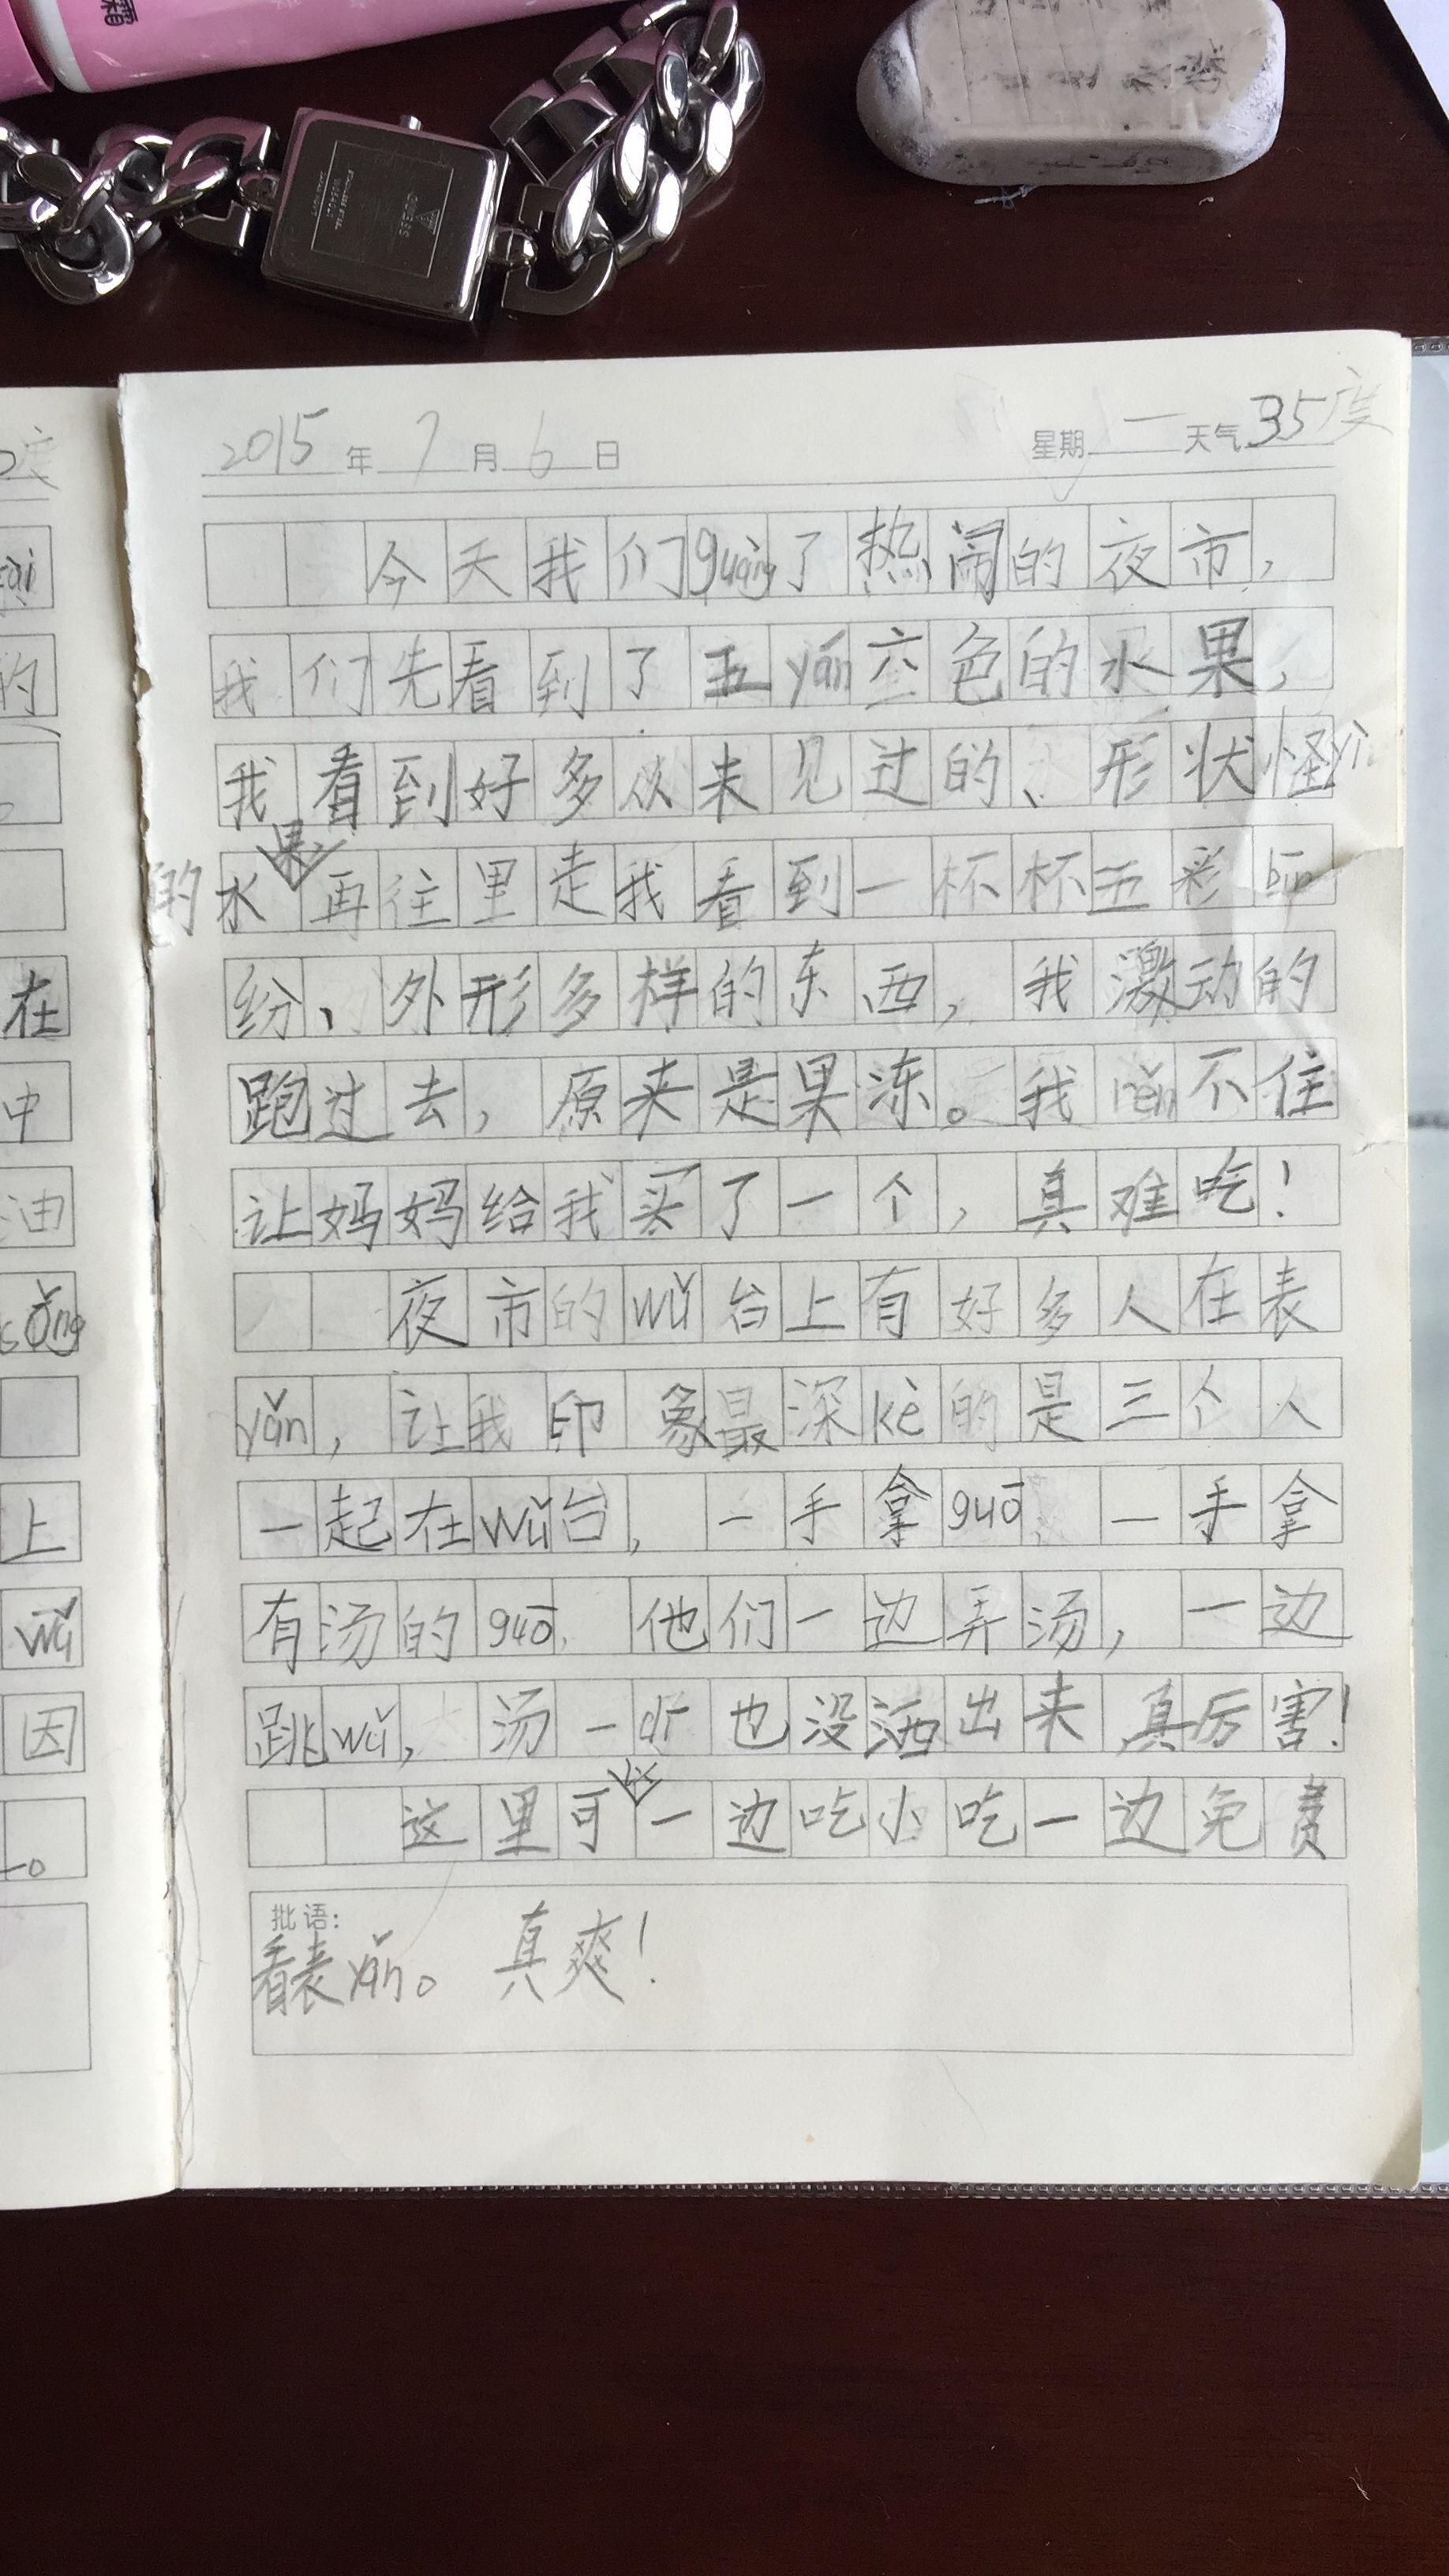 霜
GUESS
2015年7月6日 星期一 天气35度
今天我们guàng了热闹的夜市，
我们先看到了五yán六色的水果，
我看到好多从来见过的、形状怪yì
的水果，再往里走我看到一杯杯五彩bīn
纷、外形多样的东西，我激动的
跑过去，原来是果冻。我rěn不住
让妈妈给我买了一个，真难吃！
夜市的wǔ台上有好多人在表
yǎn，让我印象最深kè的是三个人
一起在wǔ台，一手拿guō，一手拿
有汤的guō，他们一边弄汤，一边
跳wǔ，汤一dī也没洒出来真厉害！
这里可以一边吃小吃一边免费
批语：
看表yǎn。真爽！
度
的
在
中
油
上
wǔ
因